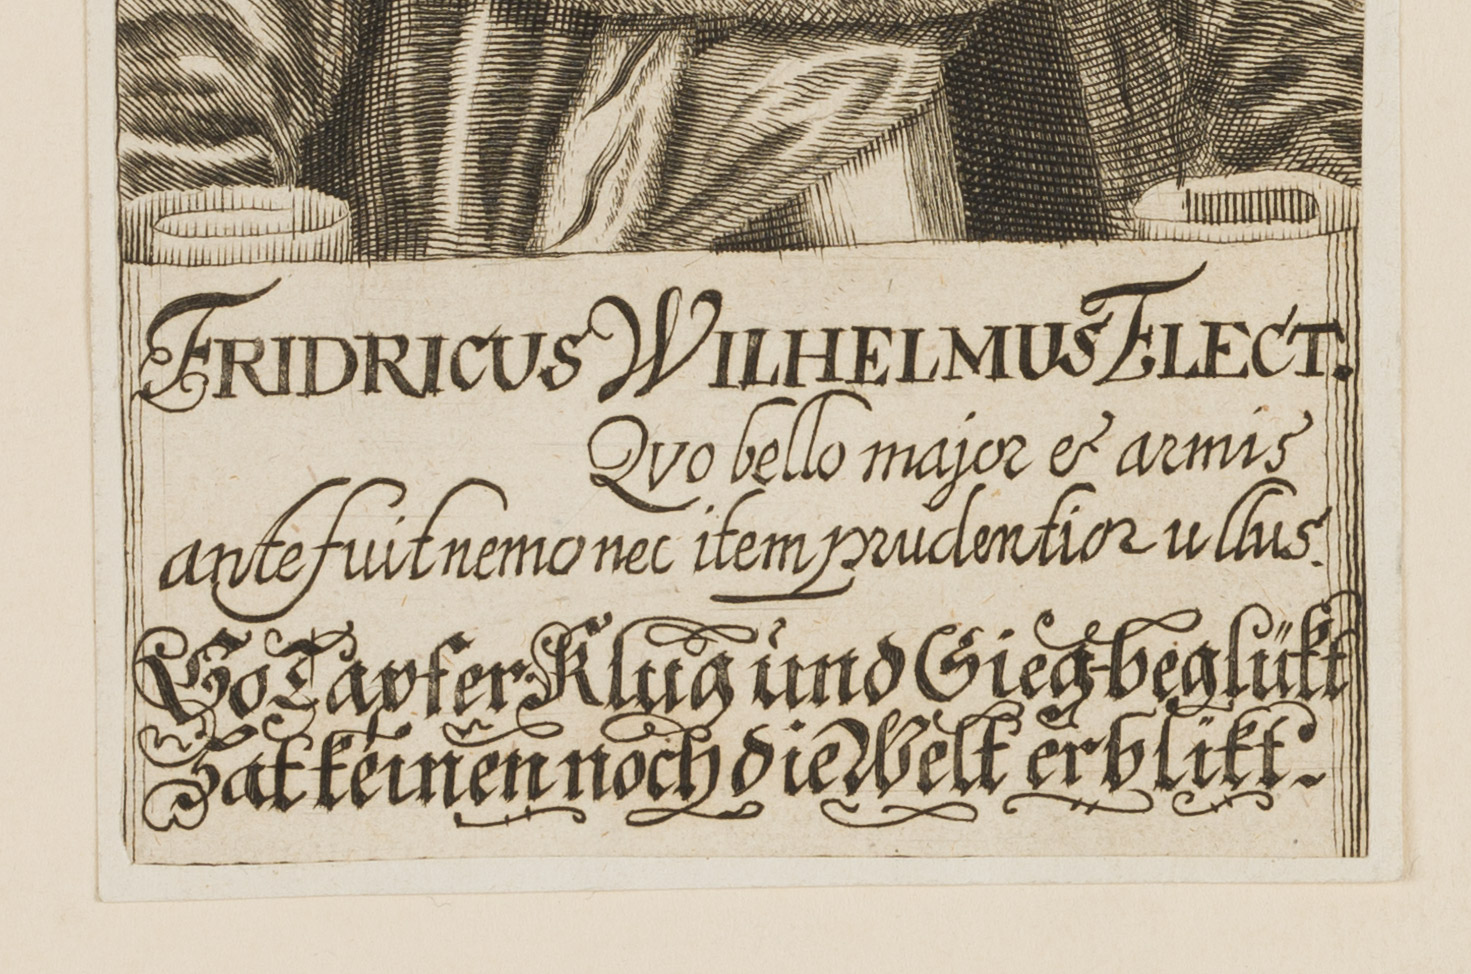 FRIDRICUS WILHELMUS ELECT.
Qvo bello major & armis
ante fuit nemo nec item prudentior ullus.
So Tapfer Klug und Sieg-beglükt
Hat keinen noch die Welt erblikt.